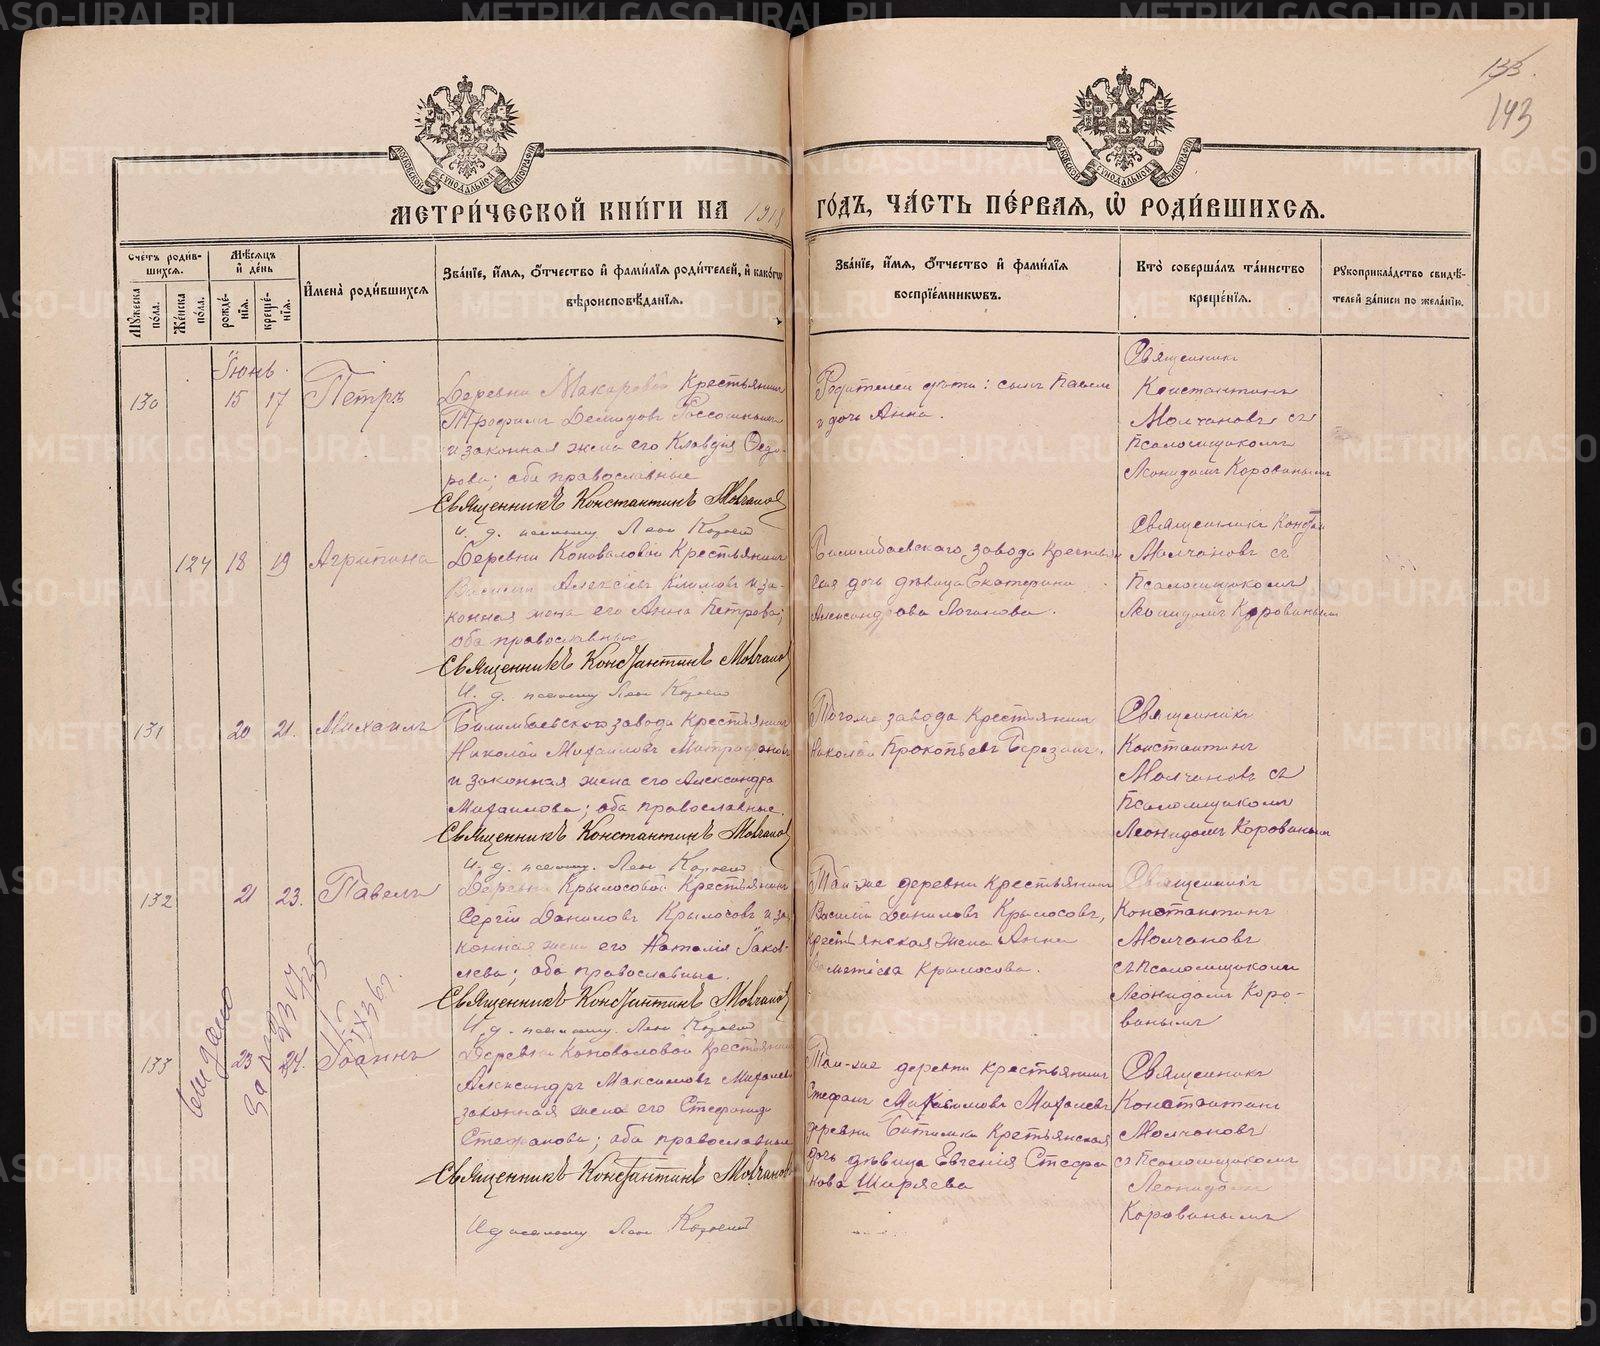 133.
143
МОСКОВСКОЙ СѴНОДАЛЬНОЙ ТИПОГРАФІИ
МОСКОВСКОЙ СѴНОДАЛЬНОЙ ТИПОГРАФІИ
МЕТРИ́ЧЕСКОЙ КНИ́ГИ НА 1918 ГО́ДЪ, ЧА́СТЬ ПЕ́РВАЯ, Ѡ РОДИ́ВШИХСЯ.
Сче́тъ роди́вшихся.
Му́жеска по́ла.
Же́нска по́ла.
Мѣ́сяцъ и де́нь
рожде́нїя.
креще́нїя.
Имена̀ роди́вшихся
Зва́нїе, и́мя, о́тчество и фами́лїя роди́телей, и како́гѡ вѣроисповѣ́данїя.
Зва́нїе, и́мя, о́тчество и фами́лїя воспрїе́мникѡвъ.
Кто̀ соверша́лъ та́инство креще́нїя.
Рукоприкла́дство свидѣ́телей за́писи по жела́нїю.
Іюнь.
130 15 17 Петръ
Деревни Макаровой Крестьянинъ
Трофимъ Демидовъ
и законная жена его Клавдія Ѳедо-
рова; оба православные
Священникъ Константинъ Молчановъ
Родителей дѣти: сынъ Павелъ
и дочь Анна.
Священникъ
Константинъ
Молчановъ съ
Псаломщикомъ
Леонидомъ Корованымъ
124 18 19 Агрипина
Деревни Коноваловой Крестьянинъ
Василій Алексѣевъ Климовъ и за-
конная жена его Анна Петрова;
оба православные
Священникъ Константинъ Молчановъ
Билимбаевскаго завода Крестьян-
ская дочь дѣвица Екатерина
Александрова Логинова.
Священникъ Конст
Молчановъ съ
Псаломщикомъ
Леонидомъ Корованымъ
131 20 21. Михаилъ
Билимбаевскаго завода Крестьянинъ
Николай Михаиловъ Митрофановъ
и законная жена его Александра
Михаилова; оба православные.
Священникъ Константинъ Молчановъ
Тогоже завода Крестьянинъ
Николай Прокопьевъ
Священникъ
Константинъ
Молчановъ съ
Псаломщикомъ
Леонидомъ Корованымъ
132 21 23. Павелъ
Деревни Крылосовой Крестьянинъ
Сергій Даниловъ Крылосовъ и за-
конная жена его Наталія Яков-
лева; оба православные.
Священникъ Константинъ Молчановъ
Той-же деревни Крестьянинъ
Василій Даниловъ Крылосовъ,
крестьянская жена Анна
Крылосова.
Священникъ
Константинъ
Молчановъ
съ Псаломщикомъ
Леонидомъ Коро-
ванымъ
выдано
за №
133 23 24. Іоаннъ
Деревни Коноваловой Крестьянинъ
Александръ Максимовъ Михалевъ
законная жена его Стефанида
Стефанова; оба православные
Священникъ Константинъ Молчановъ
Той-же деревни Крестьянинъ
Стефанъ Максимовъ Михалевъ
деревни Битимки Крестьянская
дочь дѣвица Евгенія Стефа
нова Ширяева
Священникъ
Константинъ
Молчановъ
съ Псаломщикомъ
Леонидомъ
Корованымъ
METRIKI.GASO-URAL.RU